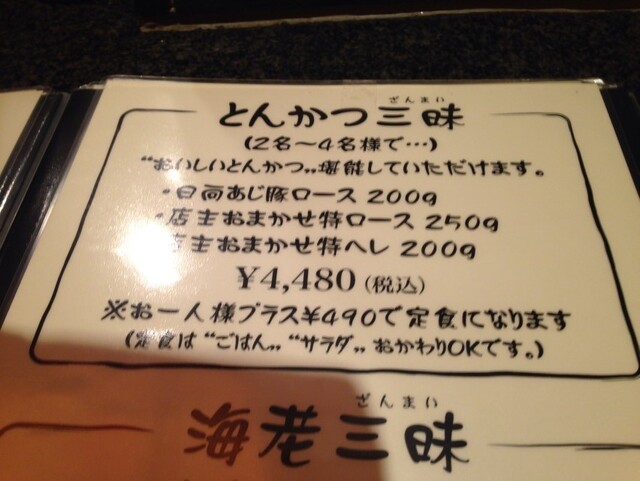 ざんまい
とんかつ三昧
(2名～4名様で…)
"おいしいとんかつ„堪能していただけます。
・日向あじ豚ロース 200g
・店主おまかせ特ロース 250g
店主おまかせ特ヘレ 200g
¥4,480(税込)
※お一人様プラス¥490で定食になります
(定食は"ごはん„"サラダ„おかわりOKです。)
ざんまい
海老三昧